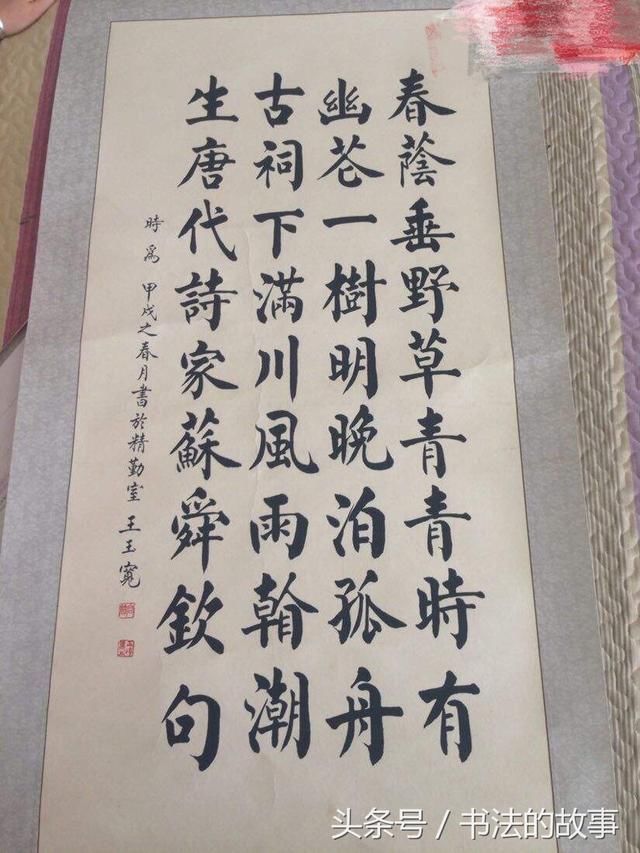 春蔭垂野草青青時有
幽花一樹明晚泊孤舟
古祠下滿川風雨翰潮
生唐代詩家蘇舜欽句
時爲甲戌之春月書於精勤室王玉寬
头条号 / 书法的故事